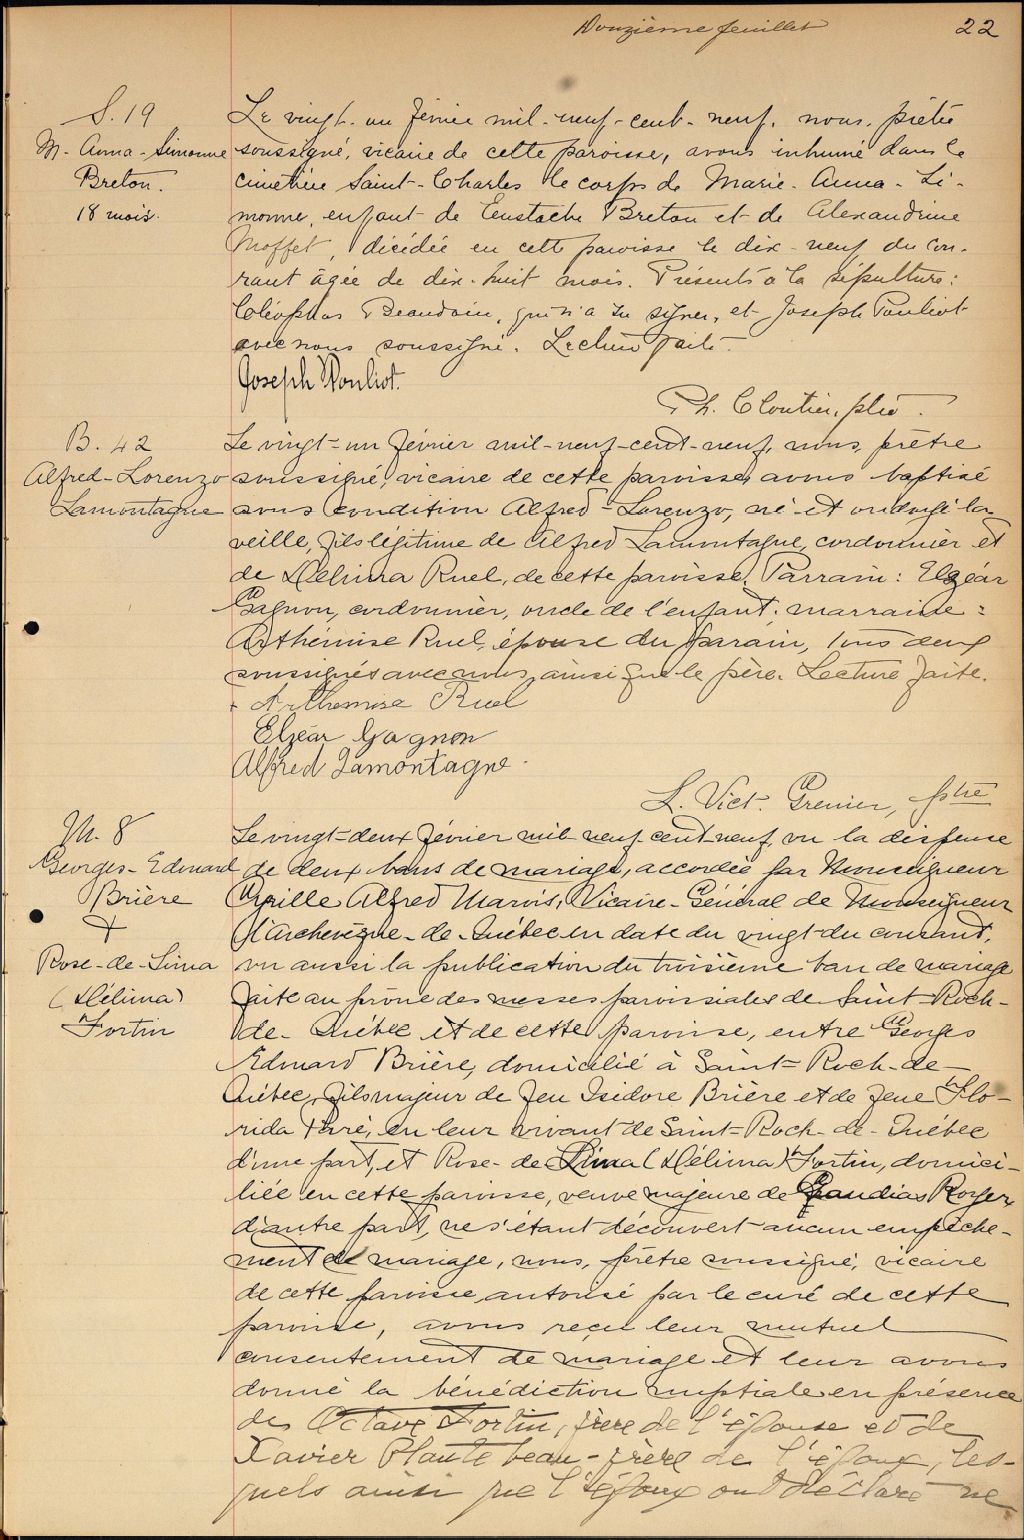 Douzième feuillet
22
S. 19
M. Anna-Simonne
Breton.
18 mois.
Le vingt-un février mil-neuf-cent-neuf, nous, prêtre
soussigné, vicaire de cette paroisse, avons inhumé dans le
cimetière Saint-Charles le corps de Marie-Anna-Si-
monne, enfant de Eustache Breton et de Alexandrine
Moffet, décédée en cette paroisse le dix-neuf du cou-
rant âgée de dix-huit mois. Présents à la sépulture:
Cléophas Beaudoin, qui n'a su signer, et Joseph Pouliot
avec nous soussigné. Lecture faite.
Joseph Pouliot.
Ph. Cloutier, ptre.
B. 42
Alfred-Lorenzo
Lamontagne
Le vingt-un février mil-neuf-cent-neuf, nous, prêtre
soussigné, vicaire de cette paroisse, avons baptisé
sous condition Alfred-Lorenzo, né et ondoyé la
veille, fils légitime de Alfred Lamontagne, cordonnier et
de Délima Ruel, de cette paroisse. Parrain: Elzéar
Gagnon, cordonnier, oncle de l'enfant; marraine:
Arthémise Ruel, épouse du parain, tous deux
soussignés avec nous, ainsi que le père. Lecture faite.
Arthemise Ruel
Elzéar Gagnon
Alfred Lamontagne.
L. Vict. Grenier, ptre
M. 8
Georges-Edouard
Brière
+
Rose-de-Lima
(Délima)
Fortin
Le vingt-deux février mil-neuf-cent-neuf, vu la dispense
de deux bans de mariage, accordée par Monseigneur
Cyrille Alfred Marois, Vicaire-Général de Monseigneur
l'Archevêque-de-Québec en date du vingt du courant,
vu aussi la publication du troisième ban de mariage
faite au prône des messes paroissiales de Saint-Roch-
de-Québec et de cette paroisse, entre Georges
Edouard Brière, domicilié à Saint-Roch-de-
Québec, fils majeur de feu Isidore Brière et de feue Flo-
rida Paré, en leur vivant de Saint-Roch-de-Québec
d'une part, et Rose-de-Lima (Délima) Fortin, domici-
liée en cette paroisse, veuve majeure de Gaudias Royer
d'autre part, ne s'étant découvert aucun empêche-
ment de mariage, nous, prêtre soussigné, vicaire
de cette paroisse, autorisé par le curé de cette
paroisse, avons reçu leur mutuel
consentement de mariage et leur avons
donné la bénédiction nuptiale en présence
de Octave Fortin, frère de l'épouse et de
Xavier Plante beau-frère de l'époux, les-
quels ainsi que l'époux ont déclaré ne